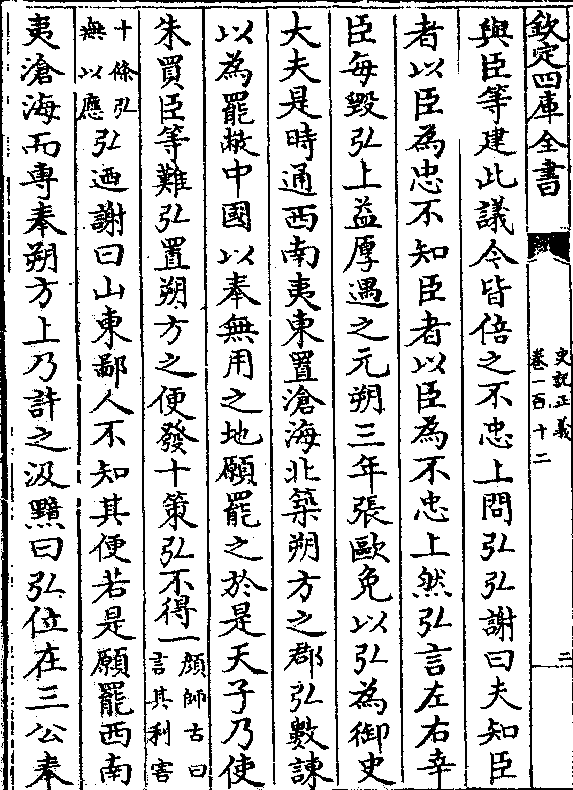 欽定四庫全書
史記正義
卷一百十二
二
與臣等建此議今皆倍之不忠上問弘弘謝曰夫知臣
者以臣為忠不知臣者以臣為不忠上然弘言左右幸
臣每毀弘上益厚遇之元朔三年張歐免以弘為御史
大夫是時通西南夷東置滄海北築朔方之郡弘數諫
以為罷敝中國以奉無用之地願罷之於是天子乃使
朱買臣等難弘置朔方之便發十策弘不得一顔師古曰言其利害
十條弘無以應弘迺謝曰山東鄙人不知其便若是願罷西南
夷滄海而專奉朔方上乃許之汲黯曰弘位在三公奉